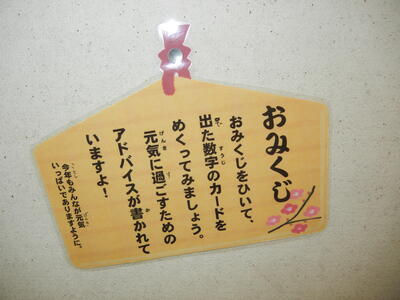 おみくじ
おみくじをひいて、
出た数字のカードを
めくってみましょう。
元気に過ごすための
アドバイスが書かれて
いますよ！
今年もみんなが元気
いっぱいでありますように。